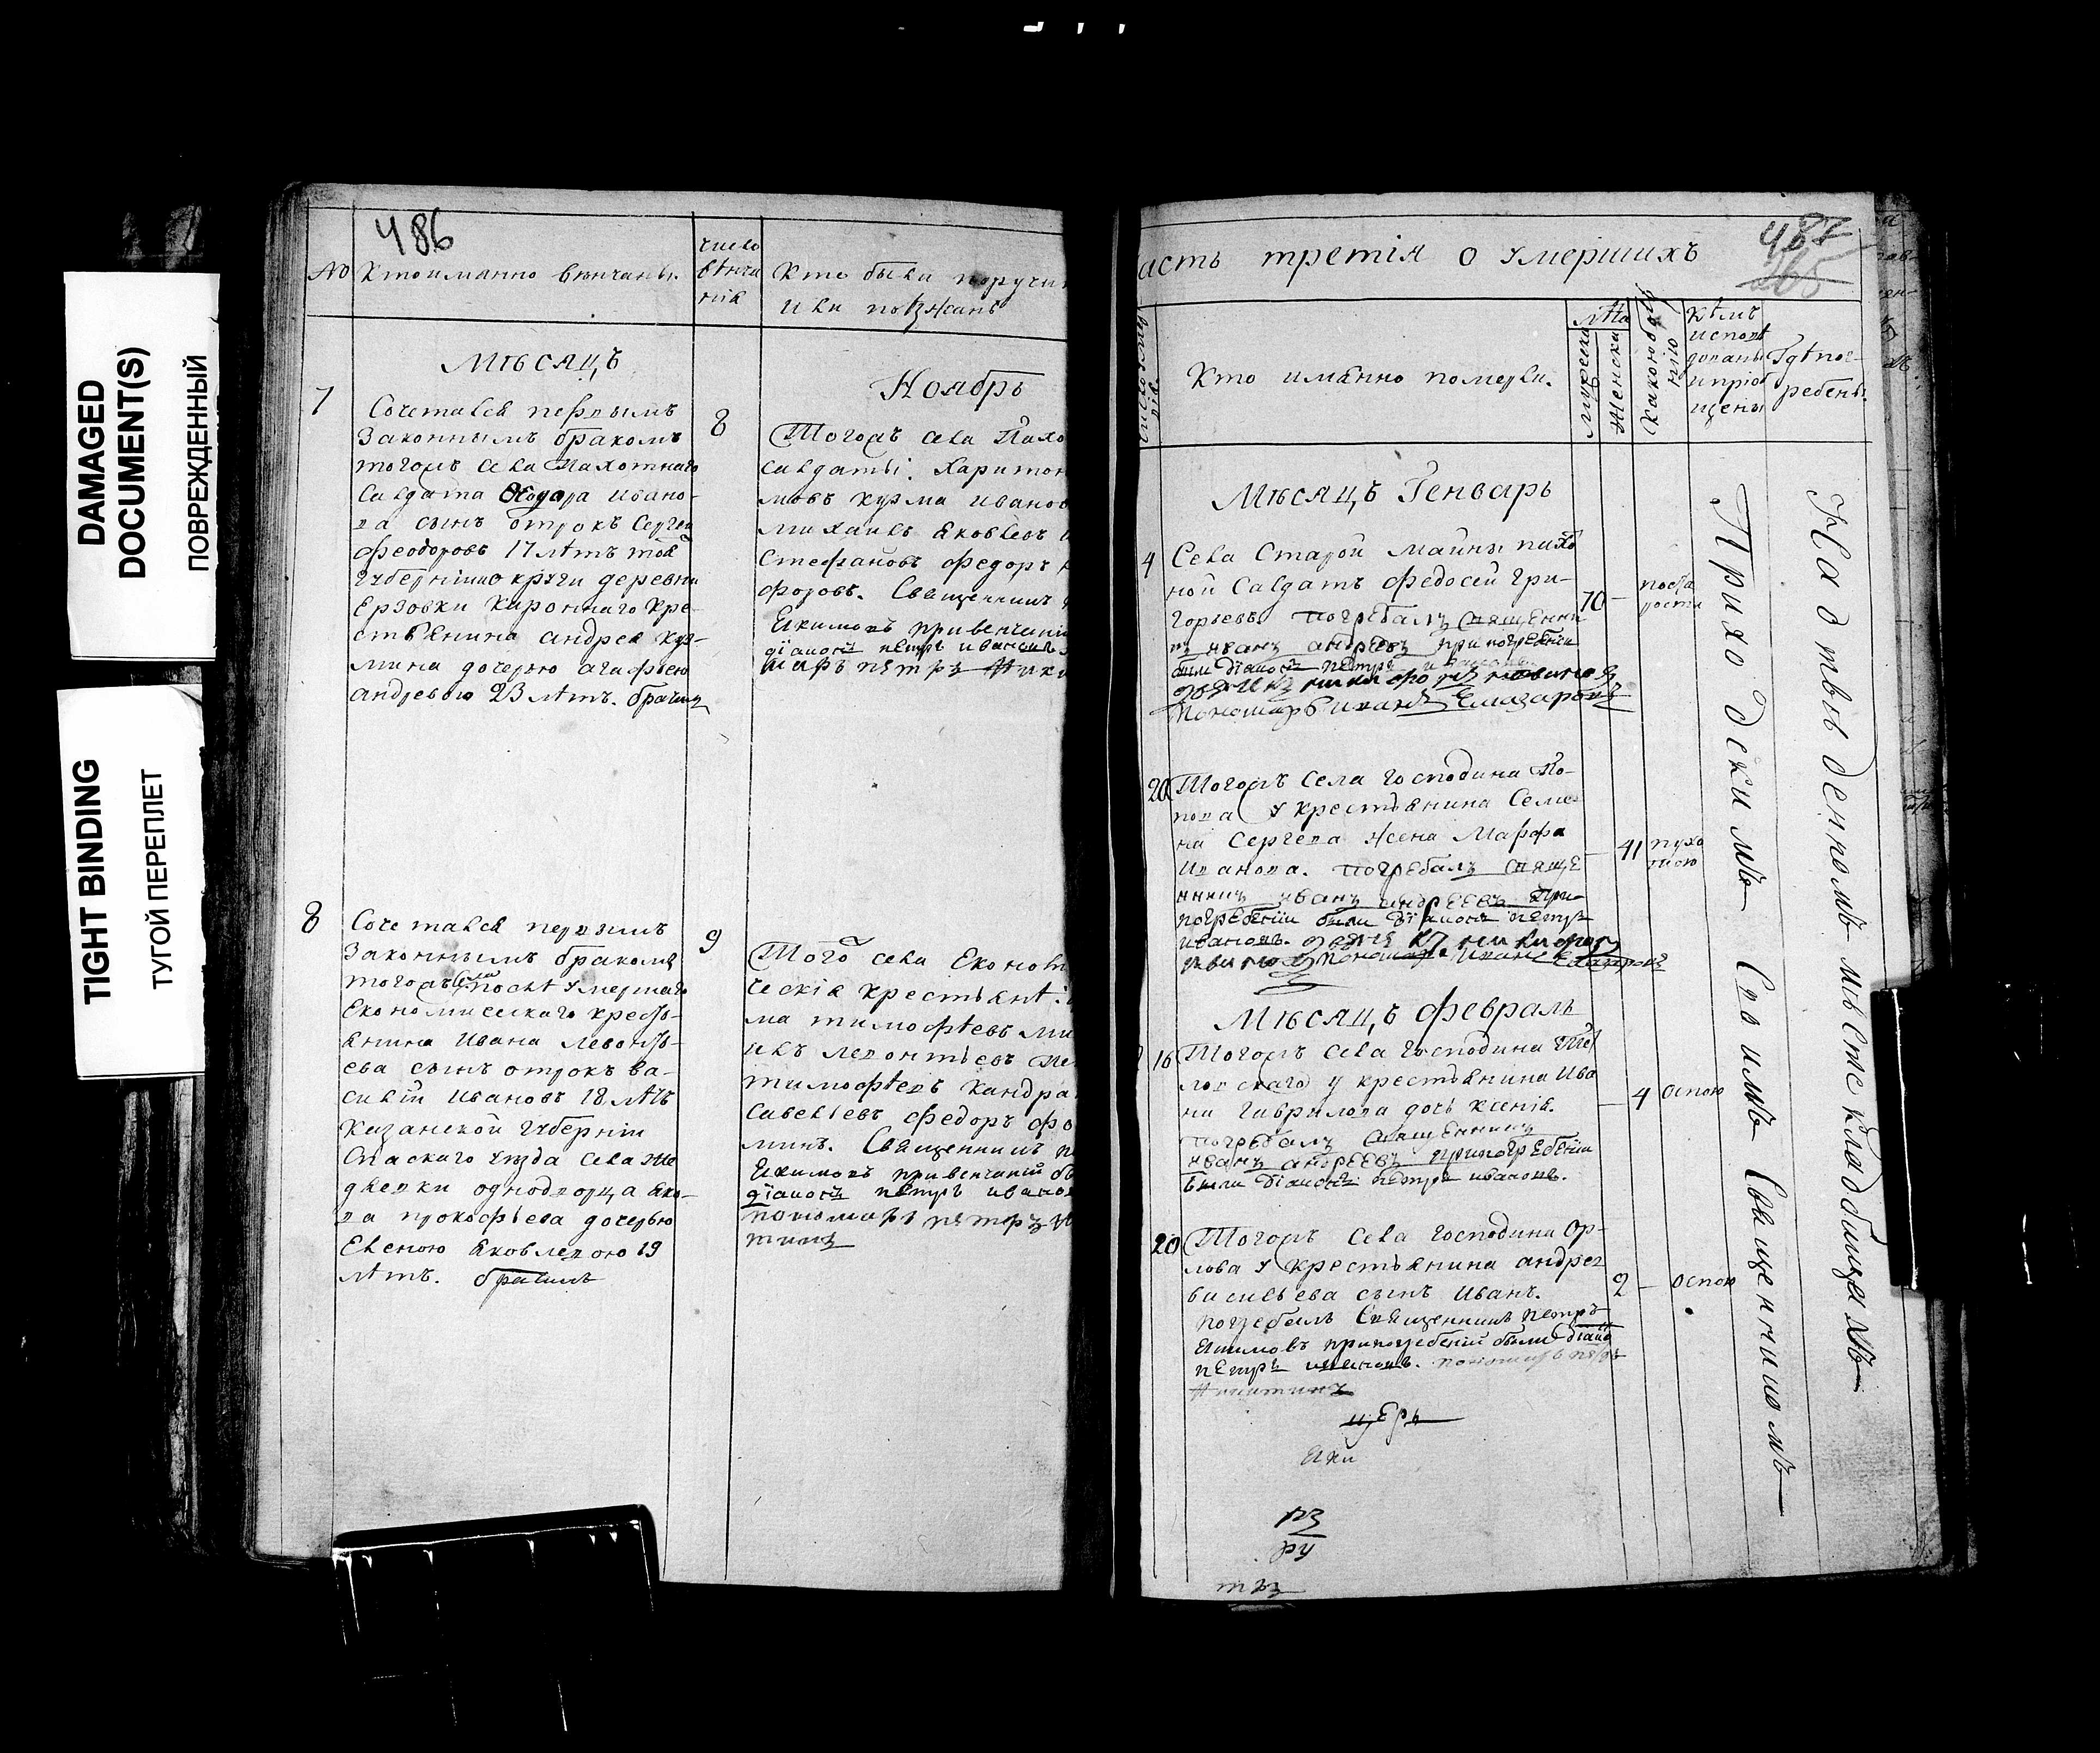 DAMAGED
DOCUMENT(S)
ПОВРЕЖДЕННЫЙ
TIGHT BINDING
ТУГОЙ ПЕРЕПЛЕТ
486
№
Кто имянно венчаны.
число
венча
нія
Кто были поручи
или поѣзжанѣ
Мѣсяцъ
Ноябрь
7
Сочетался первымъ
Законнымъ бракомъ
тогожъ села Пахотнаго
Салдата Ѳедора Ивано-
ва сынъ отрокъ Сергей
Феодоровъ 17 лѣтъ той
Губерніи округи деревни
Ерзовки Каро́ннаго Кре-
стьянина андрея куз-
мина дочерью агафьею
андревою 23 лѣтъ. брачил
8
Тогожъ села Пахо
салдаты: Харитон
мовъ кузма иванов
михаилъ яковлевъ
Стефановъ федоръ
форовъ. Священникъ
Екимовъ при венчаніи
діаконъ петръ ивановъ
марь петръ Ники
8
Сочетался первымъ
Законнымъ бракомъ
тогожъ села послѣ умершаго
Економическаго кресть-
янина Ивана Левонть-
ева сынъ отрокъ ва-
силій Ивановъ 18 лѣтъ
Казанской Губерніи
Спаскаго уѣзда села Же
двевки однодворца Яко-
ва прокофьева дочерью
Еленою Яковлевою 19
лѣтъ. брачилъ
9
Того села Економи
ческія крестьянѣ:
ма тимофѣевъ ми
илъ левонтьевъ
тимофѣевъ Кандра
Савельевъ Федоръ фо
минъ. Священникъ
Екимовъ при венчаній бы
діаконъ петръ ивано
пономарь петръ
тинъ
асть третія о умершихъ
487
Кто имянно померли.
лѣта
мужеска
Женска
Какою болѣ
нію
Кѣмъ
исповѣ
дованы
и пріоб
щены
Гдѣ пог-
ребены.
Мѣсяцъ Генварь
4
Села Старой майны пахо
ной Салдатъ федосей Гри-
горьевъ погребалъ священни
къ иванъ андреевъ при погребеніи
были діаконъ петръ ивановъ
пономарь иванъ Елизаровъ
70
по ста
рости
20
Тогожъ Села Господина По-
пова у крестьянина Семе-
на Сергева жена Марфа
Иванова. погребалъ Свяще
нникъ иванъ андреевъ при
погребеніи были діаконъ петръ
ивановъ.
пономарь Иванъ Елизаровъ
41
пухо
тою
Мѣсяцъ Февраль
16
Тогожъ села Господина
ловскаго у крестьянина Ива
на Гаврилова дочь ксенія.
погребалъ священникъ
иванъ андреевъ при погребеніи
были діаконъ петръ ивановъ.
4
оспою
20
Тогожъ Села Господина Ор-
лова у крестьянина андрея
васильева сынъ Иванъ.
погребалъ Священникъ петръ
Екимовъ при погребеніи были діако
петръ ивановъ. пономарь петръ
Никитинъ
2
оспою
Приходскимъ Своимъ Священникомъ
На отведенномъ мѣсте кладбищахъ